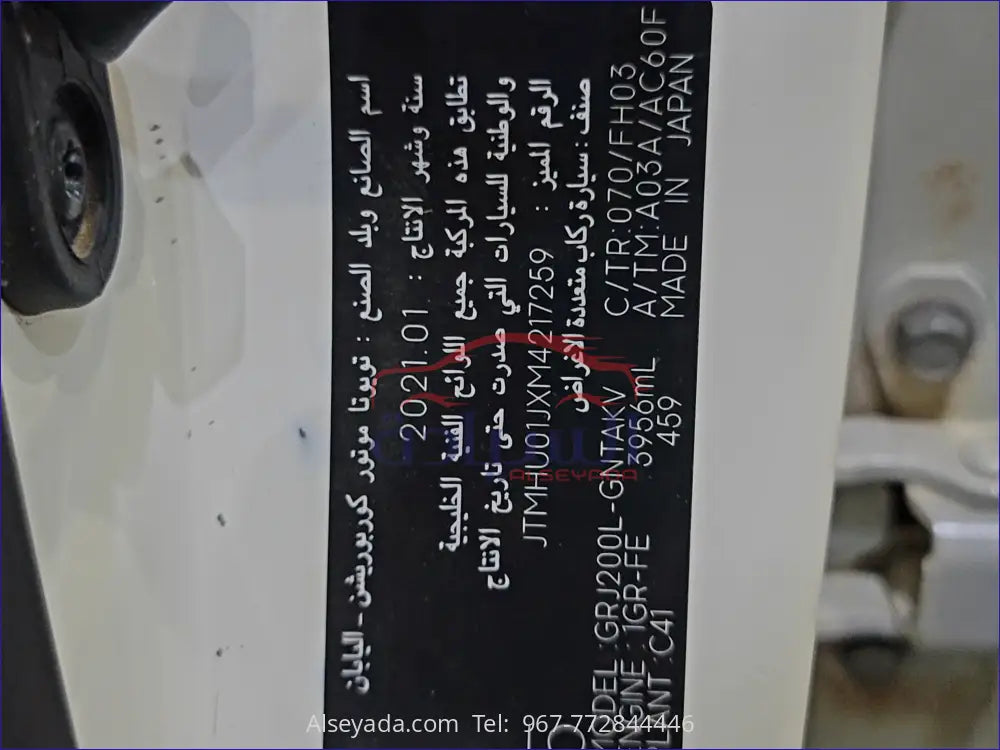 اسم الصانع وبلد الصنع : تويوتا موتور كوربوريشن - اليابان
سنة وشهر الانتاج : 2021.01
تطابق هذه المركبة جميع اللوائح الفنية الخليجية
والوطنية للسيارات التي صدرت حتى تاريخ الانتاج
الرقم المميز : JTMHU01JXM4217259
صنف : سيارة ركاب متعددة الاغراض
MODEL :GRJ200L-GNTAKV C/TR:070/FH03
ENGINE :1GR-FE 3956mL A/TM:A03A/AC60F
PLANT :C41 459 MADE IN JAPAN
السيادة
ALSEYADA
Alseyada.com Tel: 967-772844446